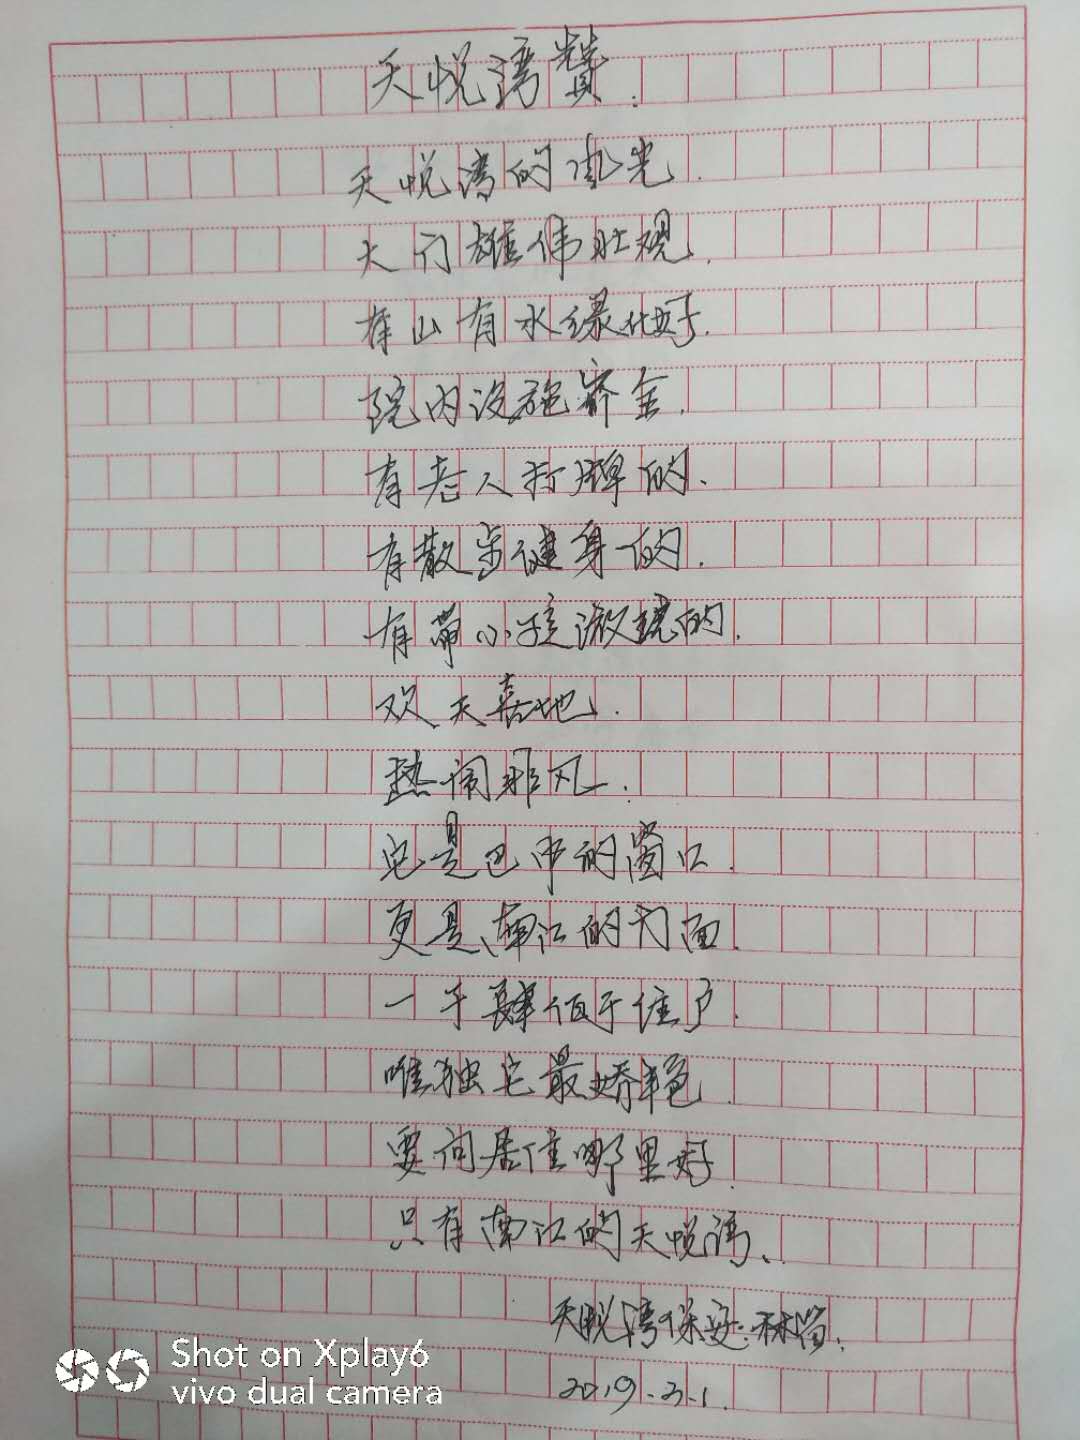 天悦湾赞.
天悦湾的风光.
大门雄伟壮观.
有山有水绿化好.
院内设施齐全.
有老人打牌的、
有散步健身的.
有带小孩游玩的.
欢天喜地.
热闹非凡.
它是巴中的窗口.
更是南江的门面.
一千肆佰于住户.
唯独它最娇艳.
要问居住哪里好.
只有南江的天悦湾、
天悦湾保安:林
2019.3.1.
Shot on Xplay6
vivo dual camera